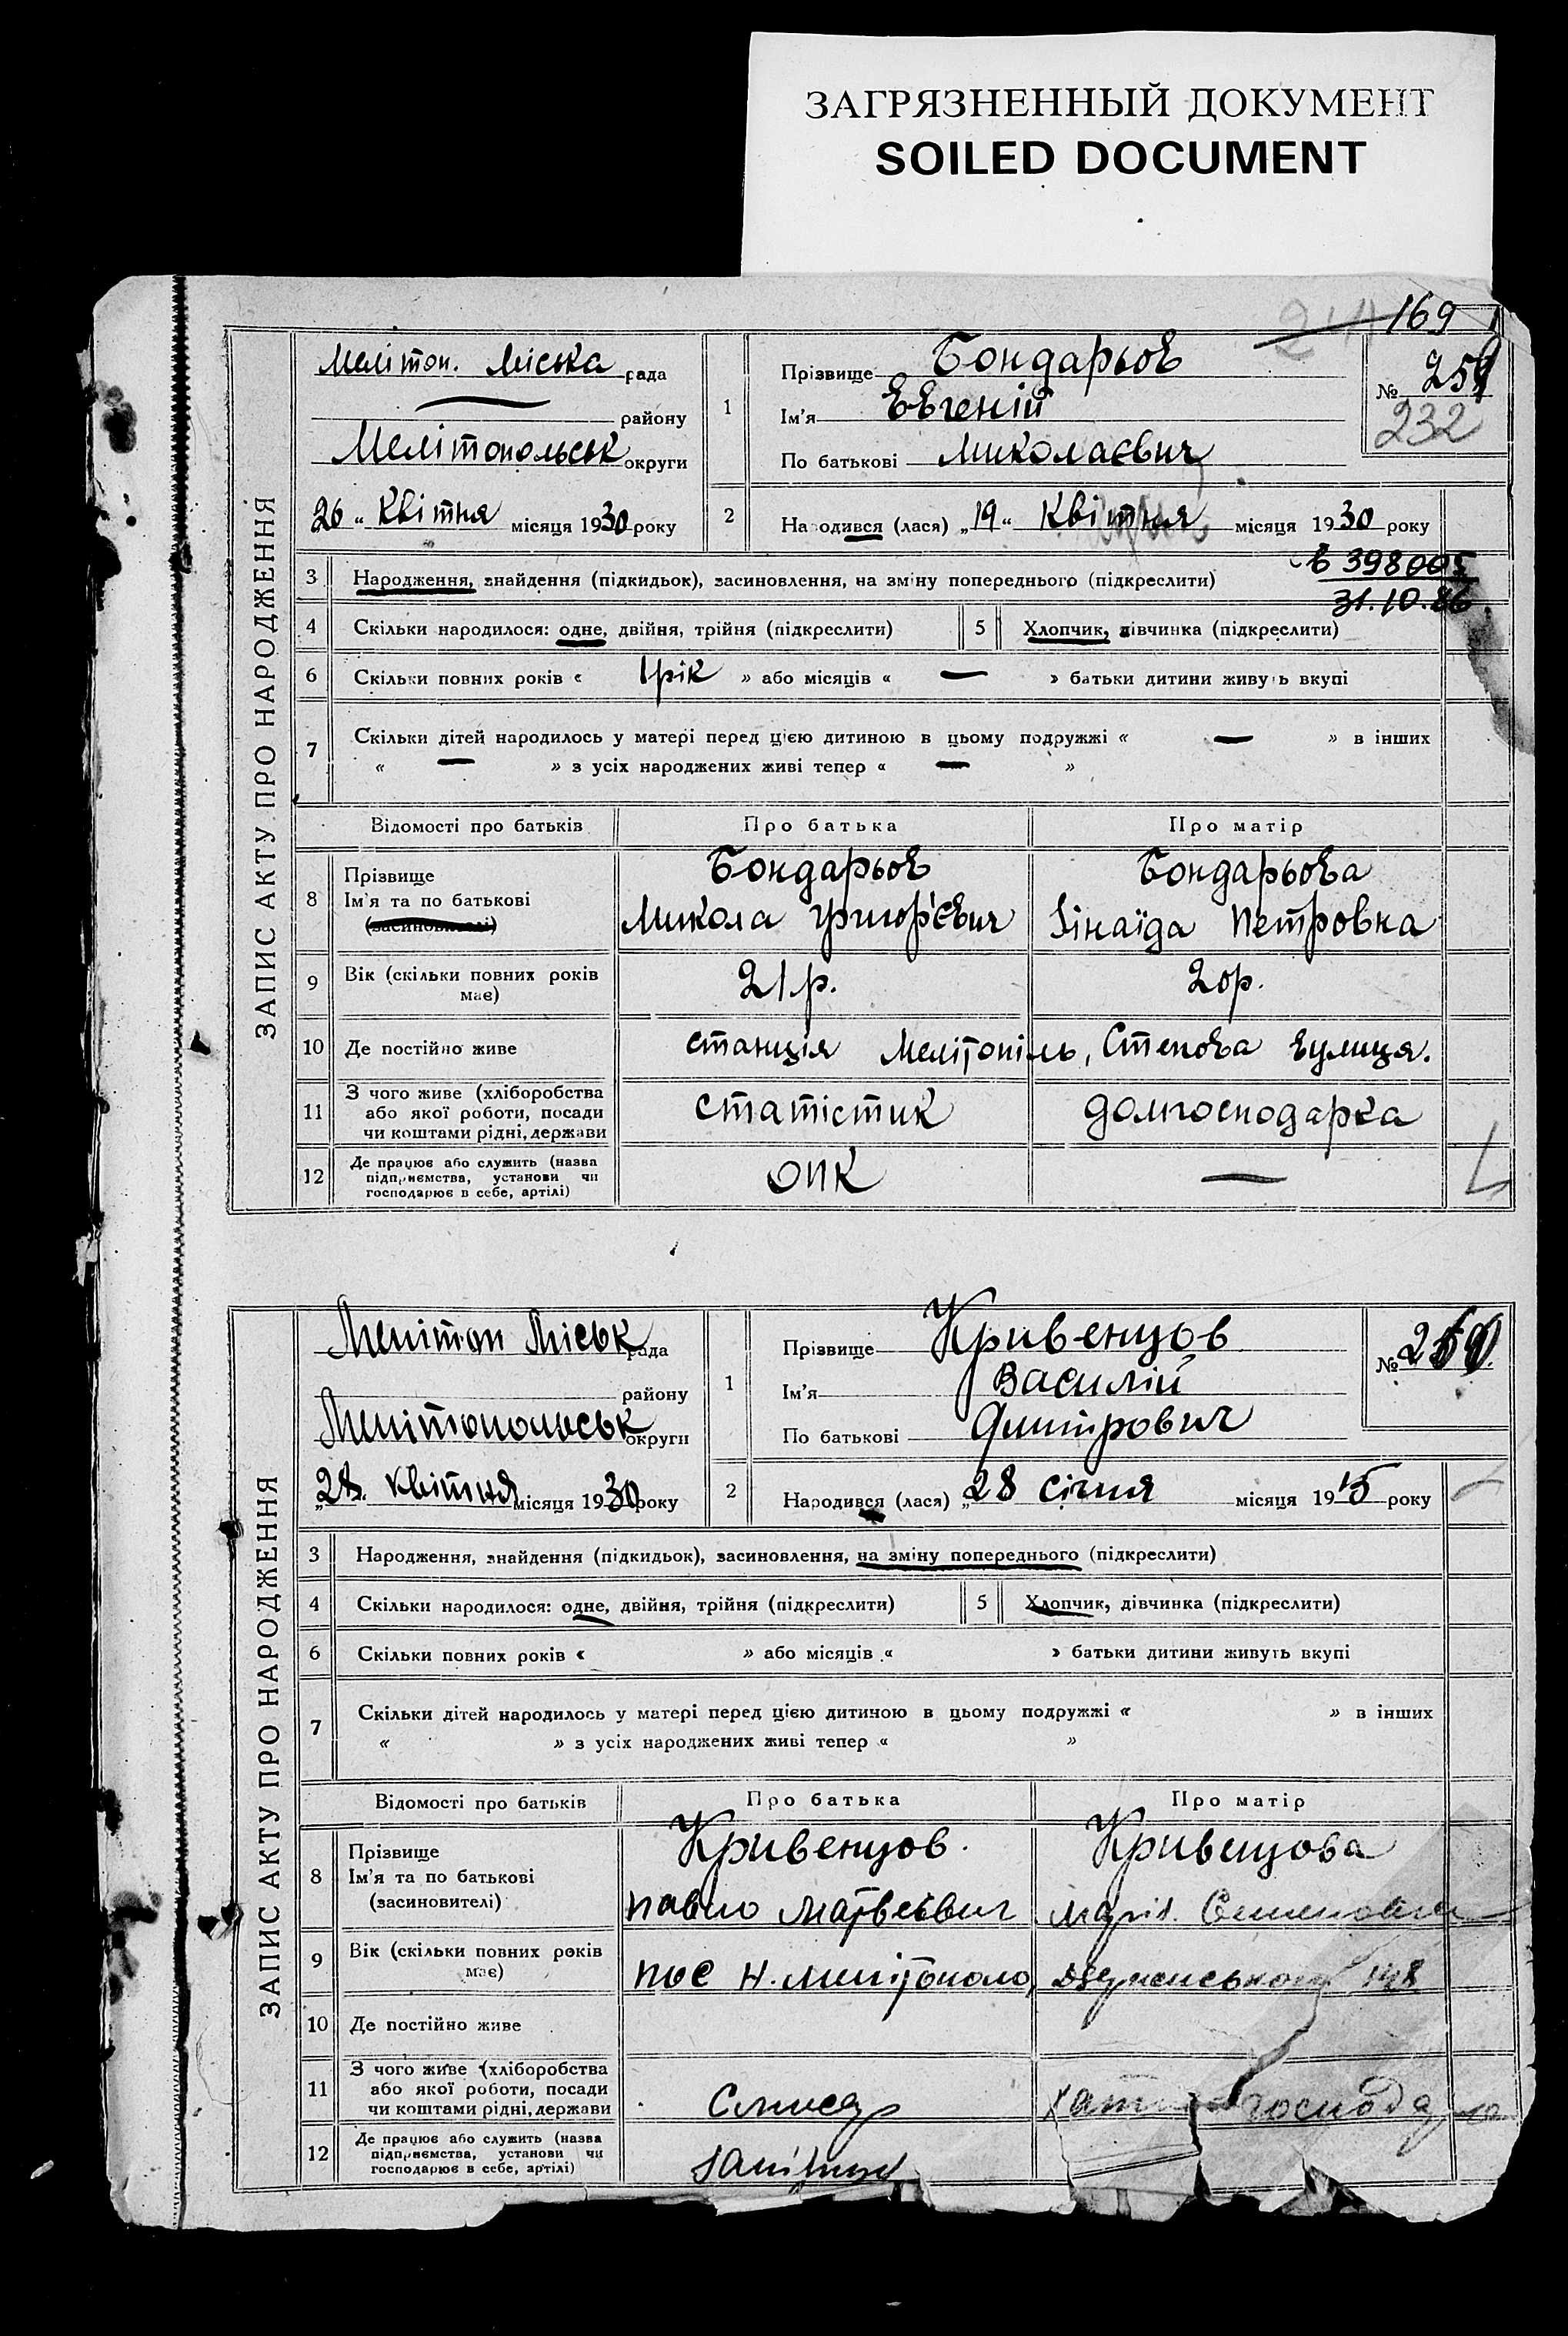 ЗАГРЯЗНЕННЫЙ ДОКУМЕНТ
SOILED DOCUMENT
169
ЗАПИС АКТУ ПРО НАРОДЖЕННЯ
Мелітоп. Міська рада
району
Мелітопольськ округи
26 „ Квітня місяця 1930 року
1
Прізвище Бондарьов
Ім'я Евгеній
По батькові Миколаєвич
№ 259
232
2
Народився (лася) „19“ Квітня місяця 1930 року
398005
31.10.86
3 Народження, знайдення (підкидьок), засиновлення, на зміну попереднього (підкреслити)
4 Скільки народилося: одне, двійня, трійня (підкреслити) 5 Хлопчик, дівчинка (підкреслити)
6 Скільки повних років « 1 рік » або місяців « — » батьки дитини живуть вкупі
7 Скільки дітей народилось у матері перед цією дитиною в цьому подружжі « — » в інших
« — » з усіх народжених живі тепер « — »
Відомості про батьків Про батька Про матір
8 Прізвище
Ім'я та по батькові
(засиновителі)
Бондарьов
Микола Григор'євич
Бондарьова
Зінаїда Петровна
9 Вік (скільки повних років має) 21 р. 20 р.
10 Де постійно живе станція Мелітопіль, Степова вулиця.
11 З чого живе (хліборобства
або якої роботи, посади
чи коштами рідні, держави
статістик домгосподарка
12 Де працює або служить (назва
підприємства, установи чи
господарює в себе, артілі)
ОПК —
ЗАПИС АКТУ ПРО НАРОДЖЕННЯ
Мелітоп Міськ рада
району
Мелітопольськ округи
„28. квітня місяця 1930 року
1
Прізвище Кривенцов
Ім'я Василій
По батькові Дмитрович
№ 260
2
Народився (лася) „28 січня місяця 1915 року
3 Народження, знайдення (підкидьок), засиновлення, на зміну попереднього (підкреслити)
4 Скільки народилося: одне, двійня, трійня (підкреслити) 5 Хлопчик, дівчинка (підкреслити)
6 Скільки повних років « » або місяців « » батьки дитини живуть вкупі
7 Скільки дітей народилось у матері перед цією дитиною в цьому подружжі « » в інших
« » з усіх народжених живі тепер « »
Відомості про батьків Про батька Про матір
8 Прізвище
Ім'я та по батькові
(засиновителі)
Кривенцов.
Павло Матвеєвич
Кривенцова
Марія Семеновна
9 Вік (скільки повних років має) пос Н. Мелітополь,
10 Де постійно живе
11 З чого живе (хліборобства
або якої роботи, посади
чи коштами рідні, держави
Слюсар
12 Де працює або служить (назва
підприємства, установи чи
господарює в себе, артілі)